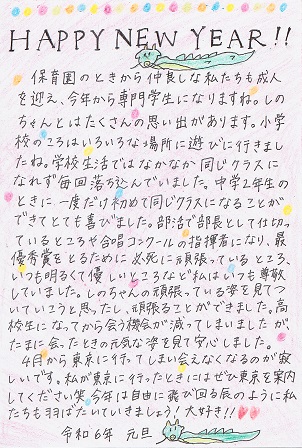 HAPPY NEW YEAR!!
保育園のときから仲良しな私たちも成人
を迎え、今年から専門学生になりますね。しの
ちゃんとはたくさんの思い出があります。小学
校のころはいろいろな場所に遊びに行きまし
たね。学校生活ではなかなか同じクラスに
なれず毎回落ち込んでいました。中学2年生の
ときに一度だけ初めて同じクラスになることが
できてとても喜びました。部活で部長として仕切っ
ているところや合唱コンクールの指揮者になり、最
優秀賞をとるために必死に頑張っているところ、
いつも明るくて優しいところなど私はいつも尊敬
していました。しのちゃんの頑張っている姿を見てつ
いていこうと思ったし、頑張ることができました。高
校生になってから会う機会が減ってしまいましたが
たまに会ったときの元気な姿を見て安心しました。
4月から東京に行ってしまい会えなくなるのが寂
しいです。私が東京に行ったときにはぜひ東京を案内
してください笑 今年は自由に飛び回る辰のように私
たちも羽ばたいていきましょう!大好き!!
令和6年 元旦